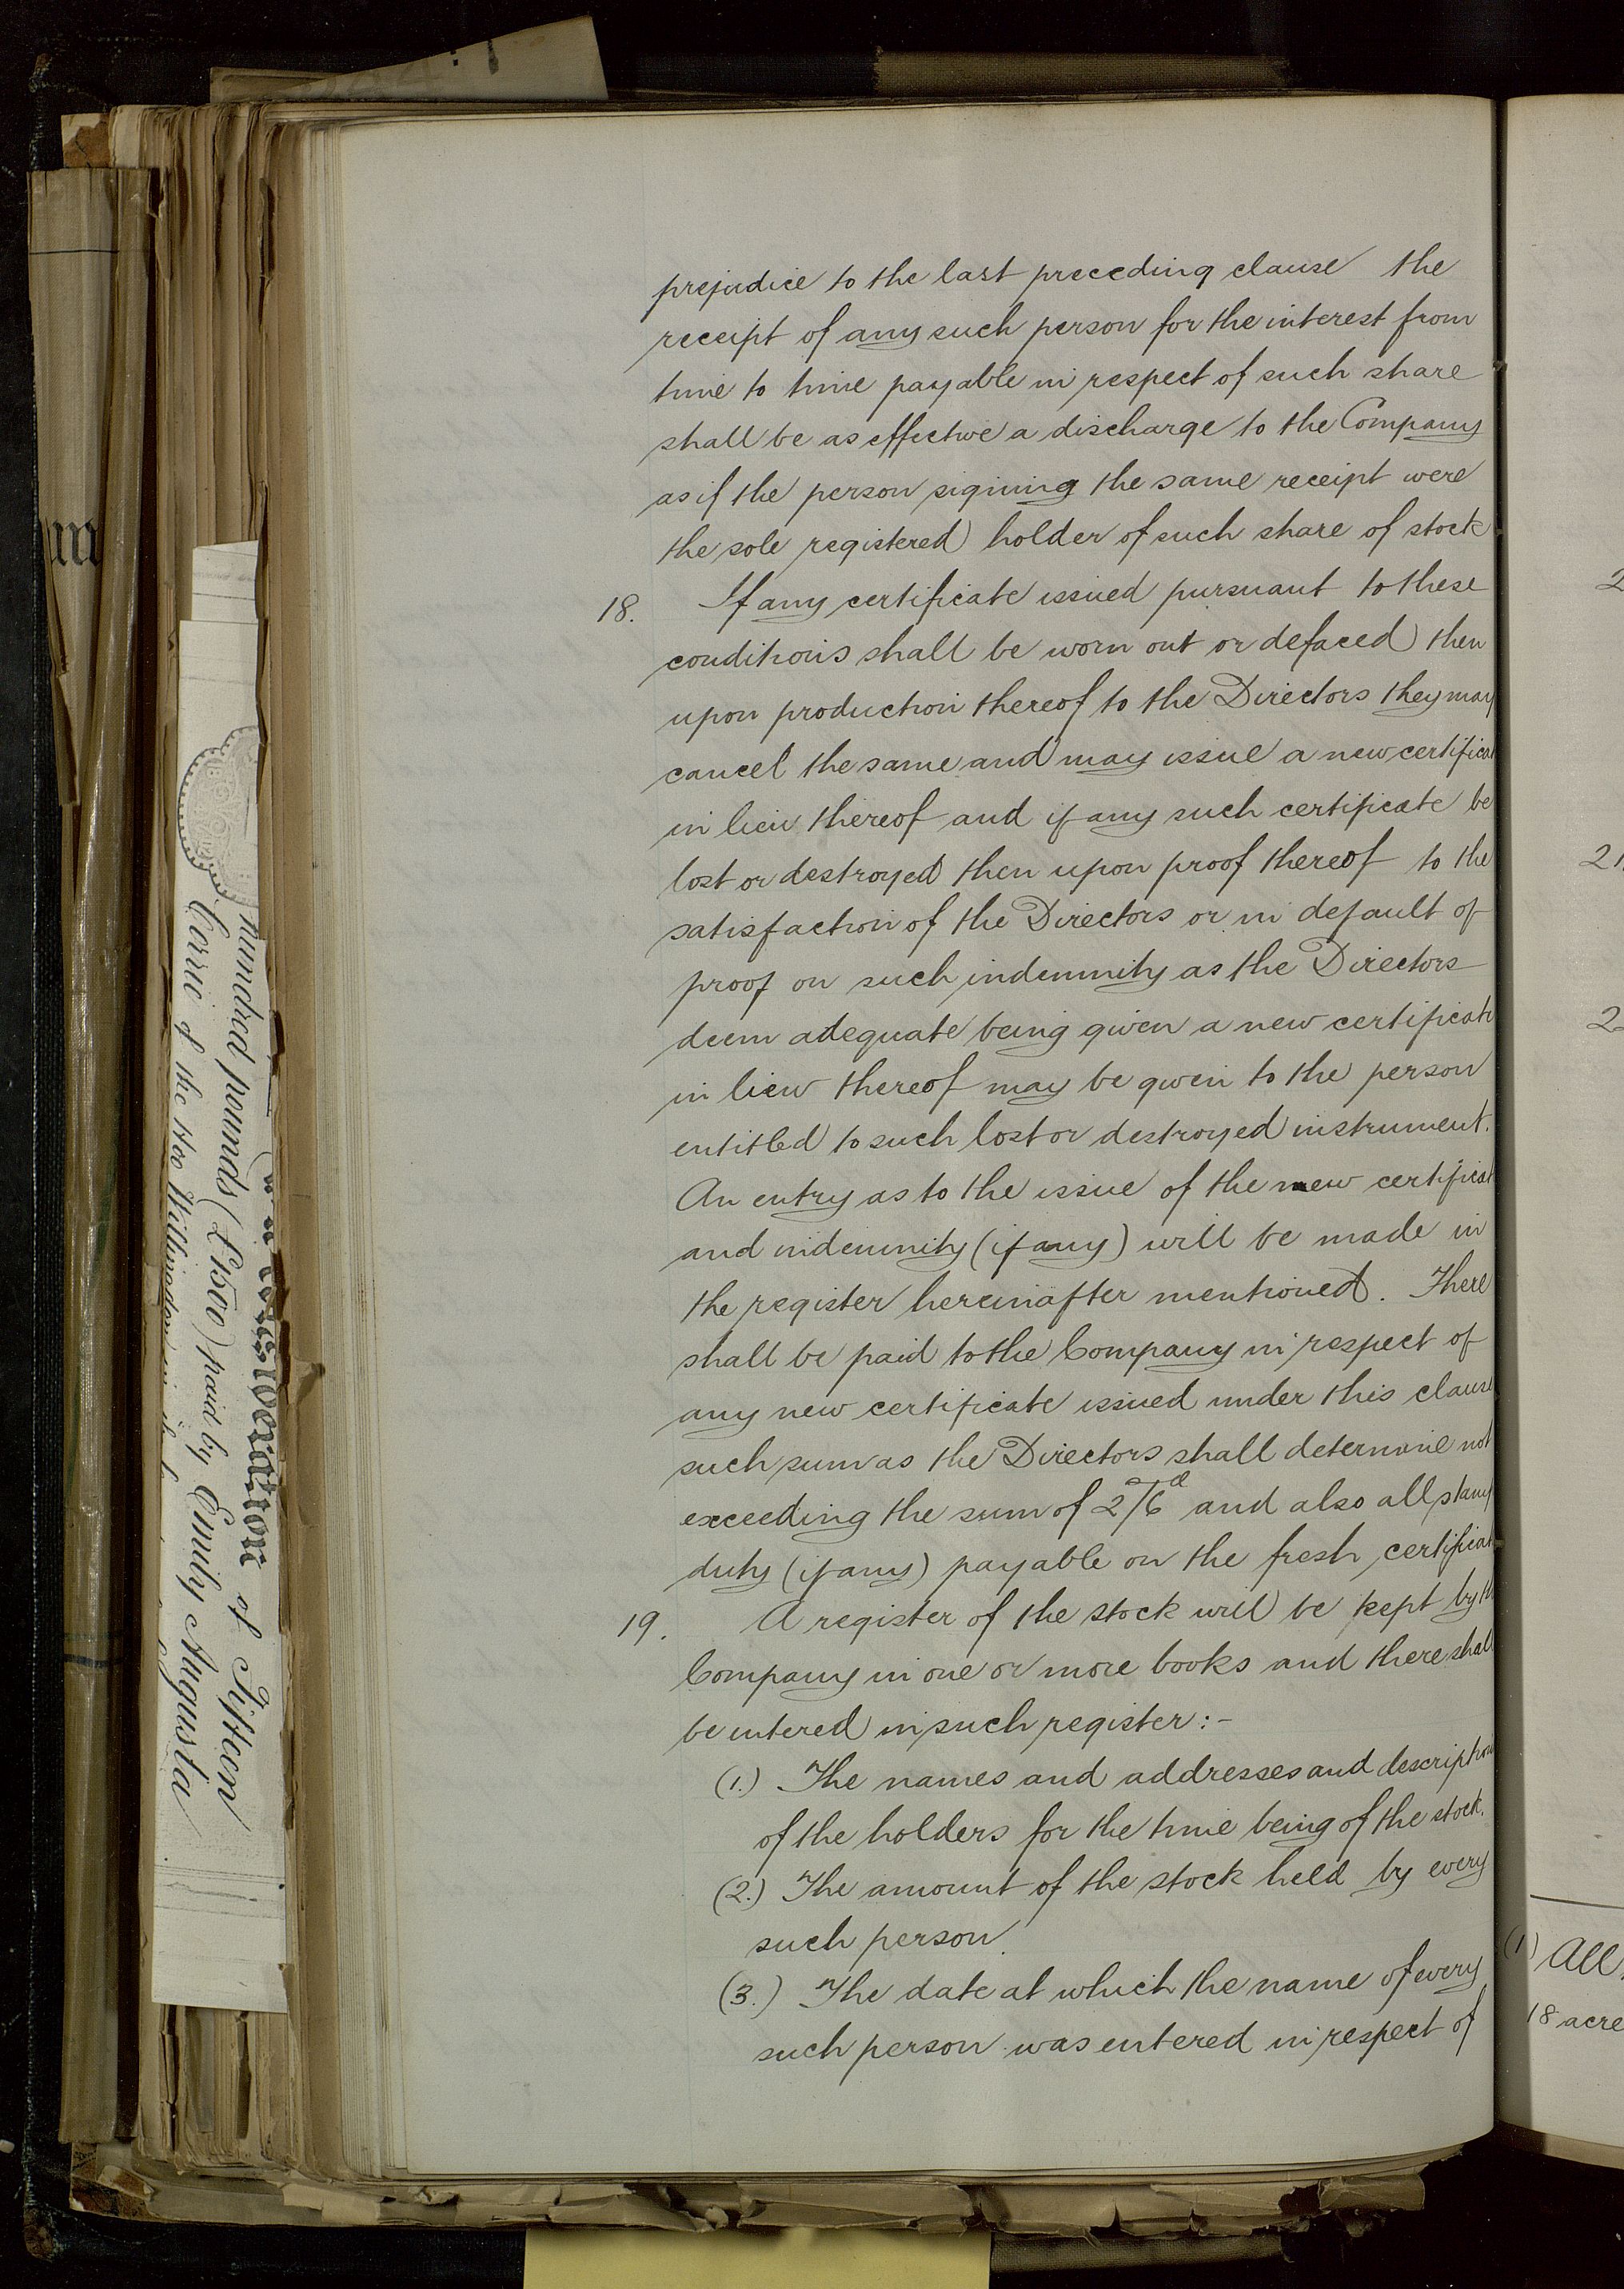 prejudice to the last preceding clause the
receipt of any such person for the interest from
time to time payable in respect of such share
shall be as effective a discharge to the Company
as if the person signing the same receipt were
the sole registered holder of such share of stock
18. If any certificate issued pursuant to these
conditions shall be worn out or defaced then
upon production thereof to the Directors they may
cancel the same and may issue a new certificat
in lieu thereof and if any such certificate be
lost or destroyed then upon proof thereof to the
satisfaction of the Directors or in default of
proof on such indemnity as the Directors
deem adequate being given a new certificate
in lieu thereof may be given to the person
entitled to such lost or destroyed instrument.
An entry as to the issue of the new certificat
and indemnity (if any) will be made in
the register hereinafter mentioned. There
shall be paid to the Company in respect of
any new certificate issued under this clause
such sum as the Directors shall determine not
exceeding the sum of 2s/6d and also all stamp
duty (if any) payable on the fresh certificat
19. A register of the stock will be kept by th
Company in one or more books and there shall
be entered in such register:-
(1.) The names and addresses and description
of the holders for the time being of the stock.
(2.) The amount of the stock held by every
such person.
(3.) The date at which the name of every
such person was entered in respect of
consideration of Fifteen
hundred pounds (£1500) paid by Emily Augusta
of the
21
2
(1) All
18 acre